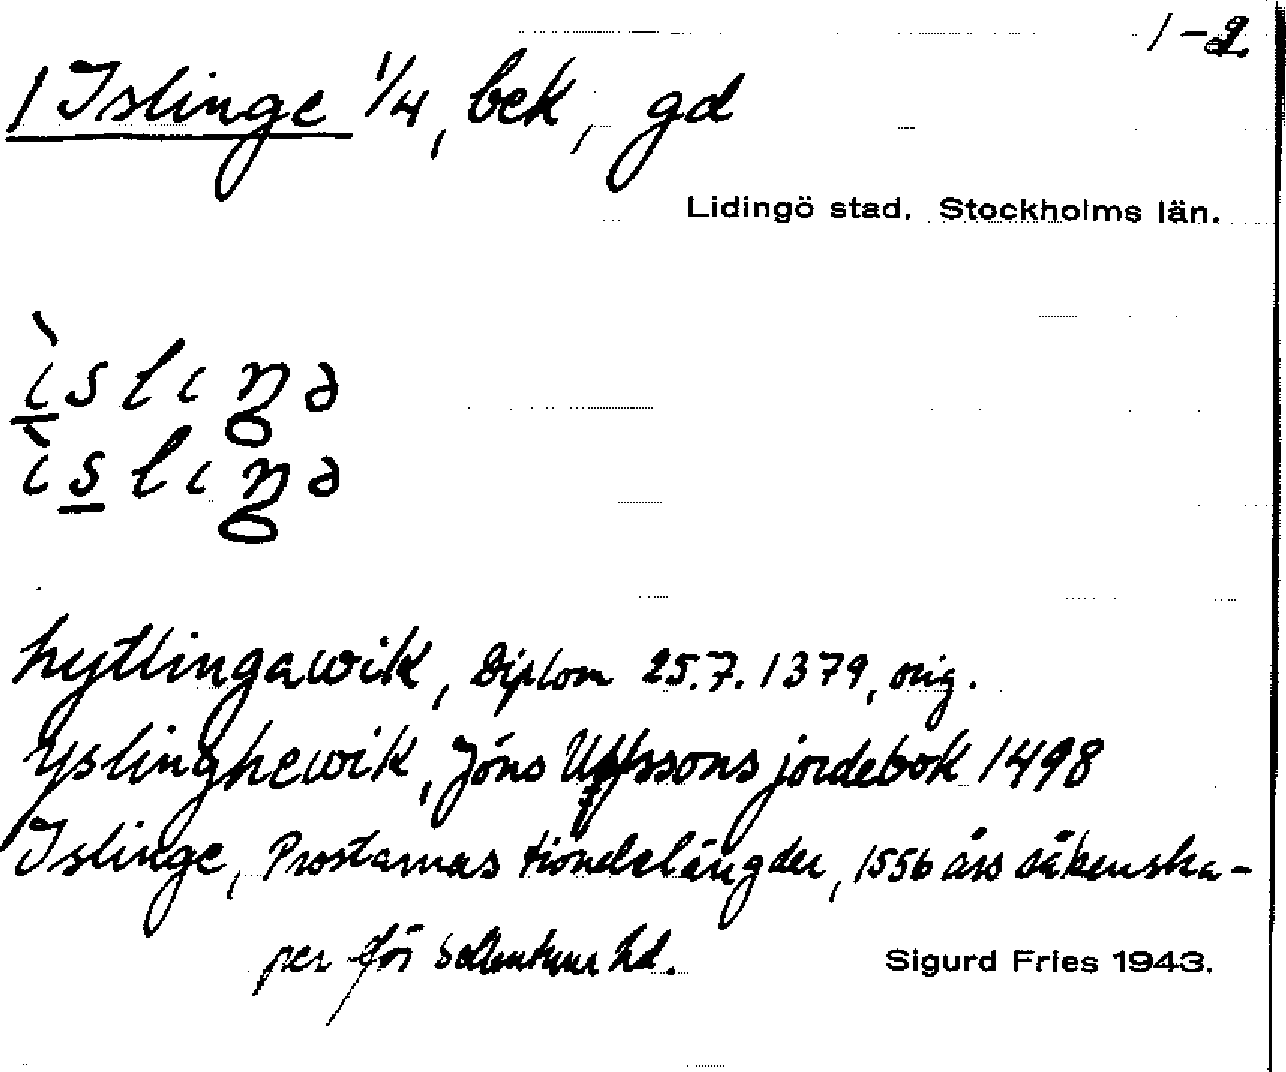 1-2
1 Islinge 1/4, bek, gd
Lidingö stad. Stockholms län.
ìslıŋə
ìslıŋə
hytlingawik, Diplom 25.7.1379, orig.
Yslinghewik, Jöns Ulfssons jordebok 1498
Islinge, Prostarnas tiondelängder, 1556 års räkenska-
per för Sollentuna hd.
Sigurd Fries 1943.